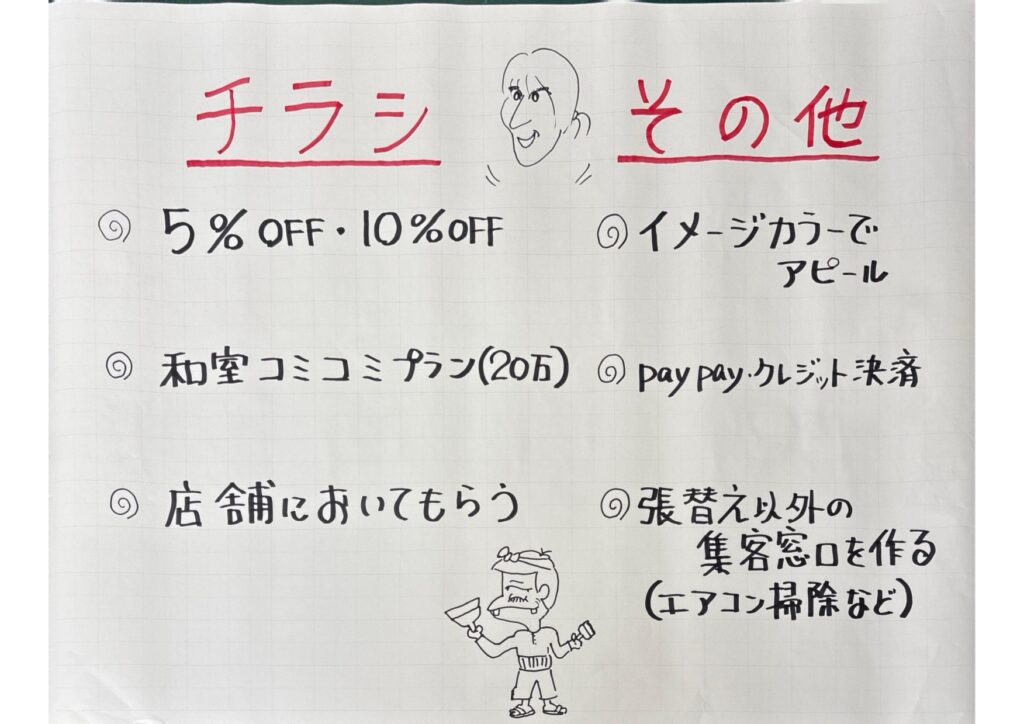 チラシ
5%OFF・10%OFF
和室コミコミプラン(20万)
店舗においてもらう
その他
イメージカラーで
アピール
paypay・クレジット決済
張替え以外の
集客窓口を作る
(エアコン掃除など)